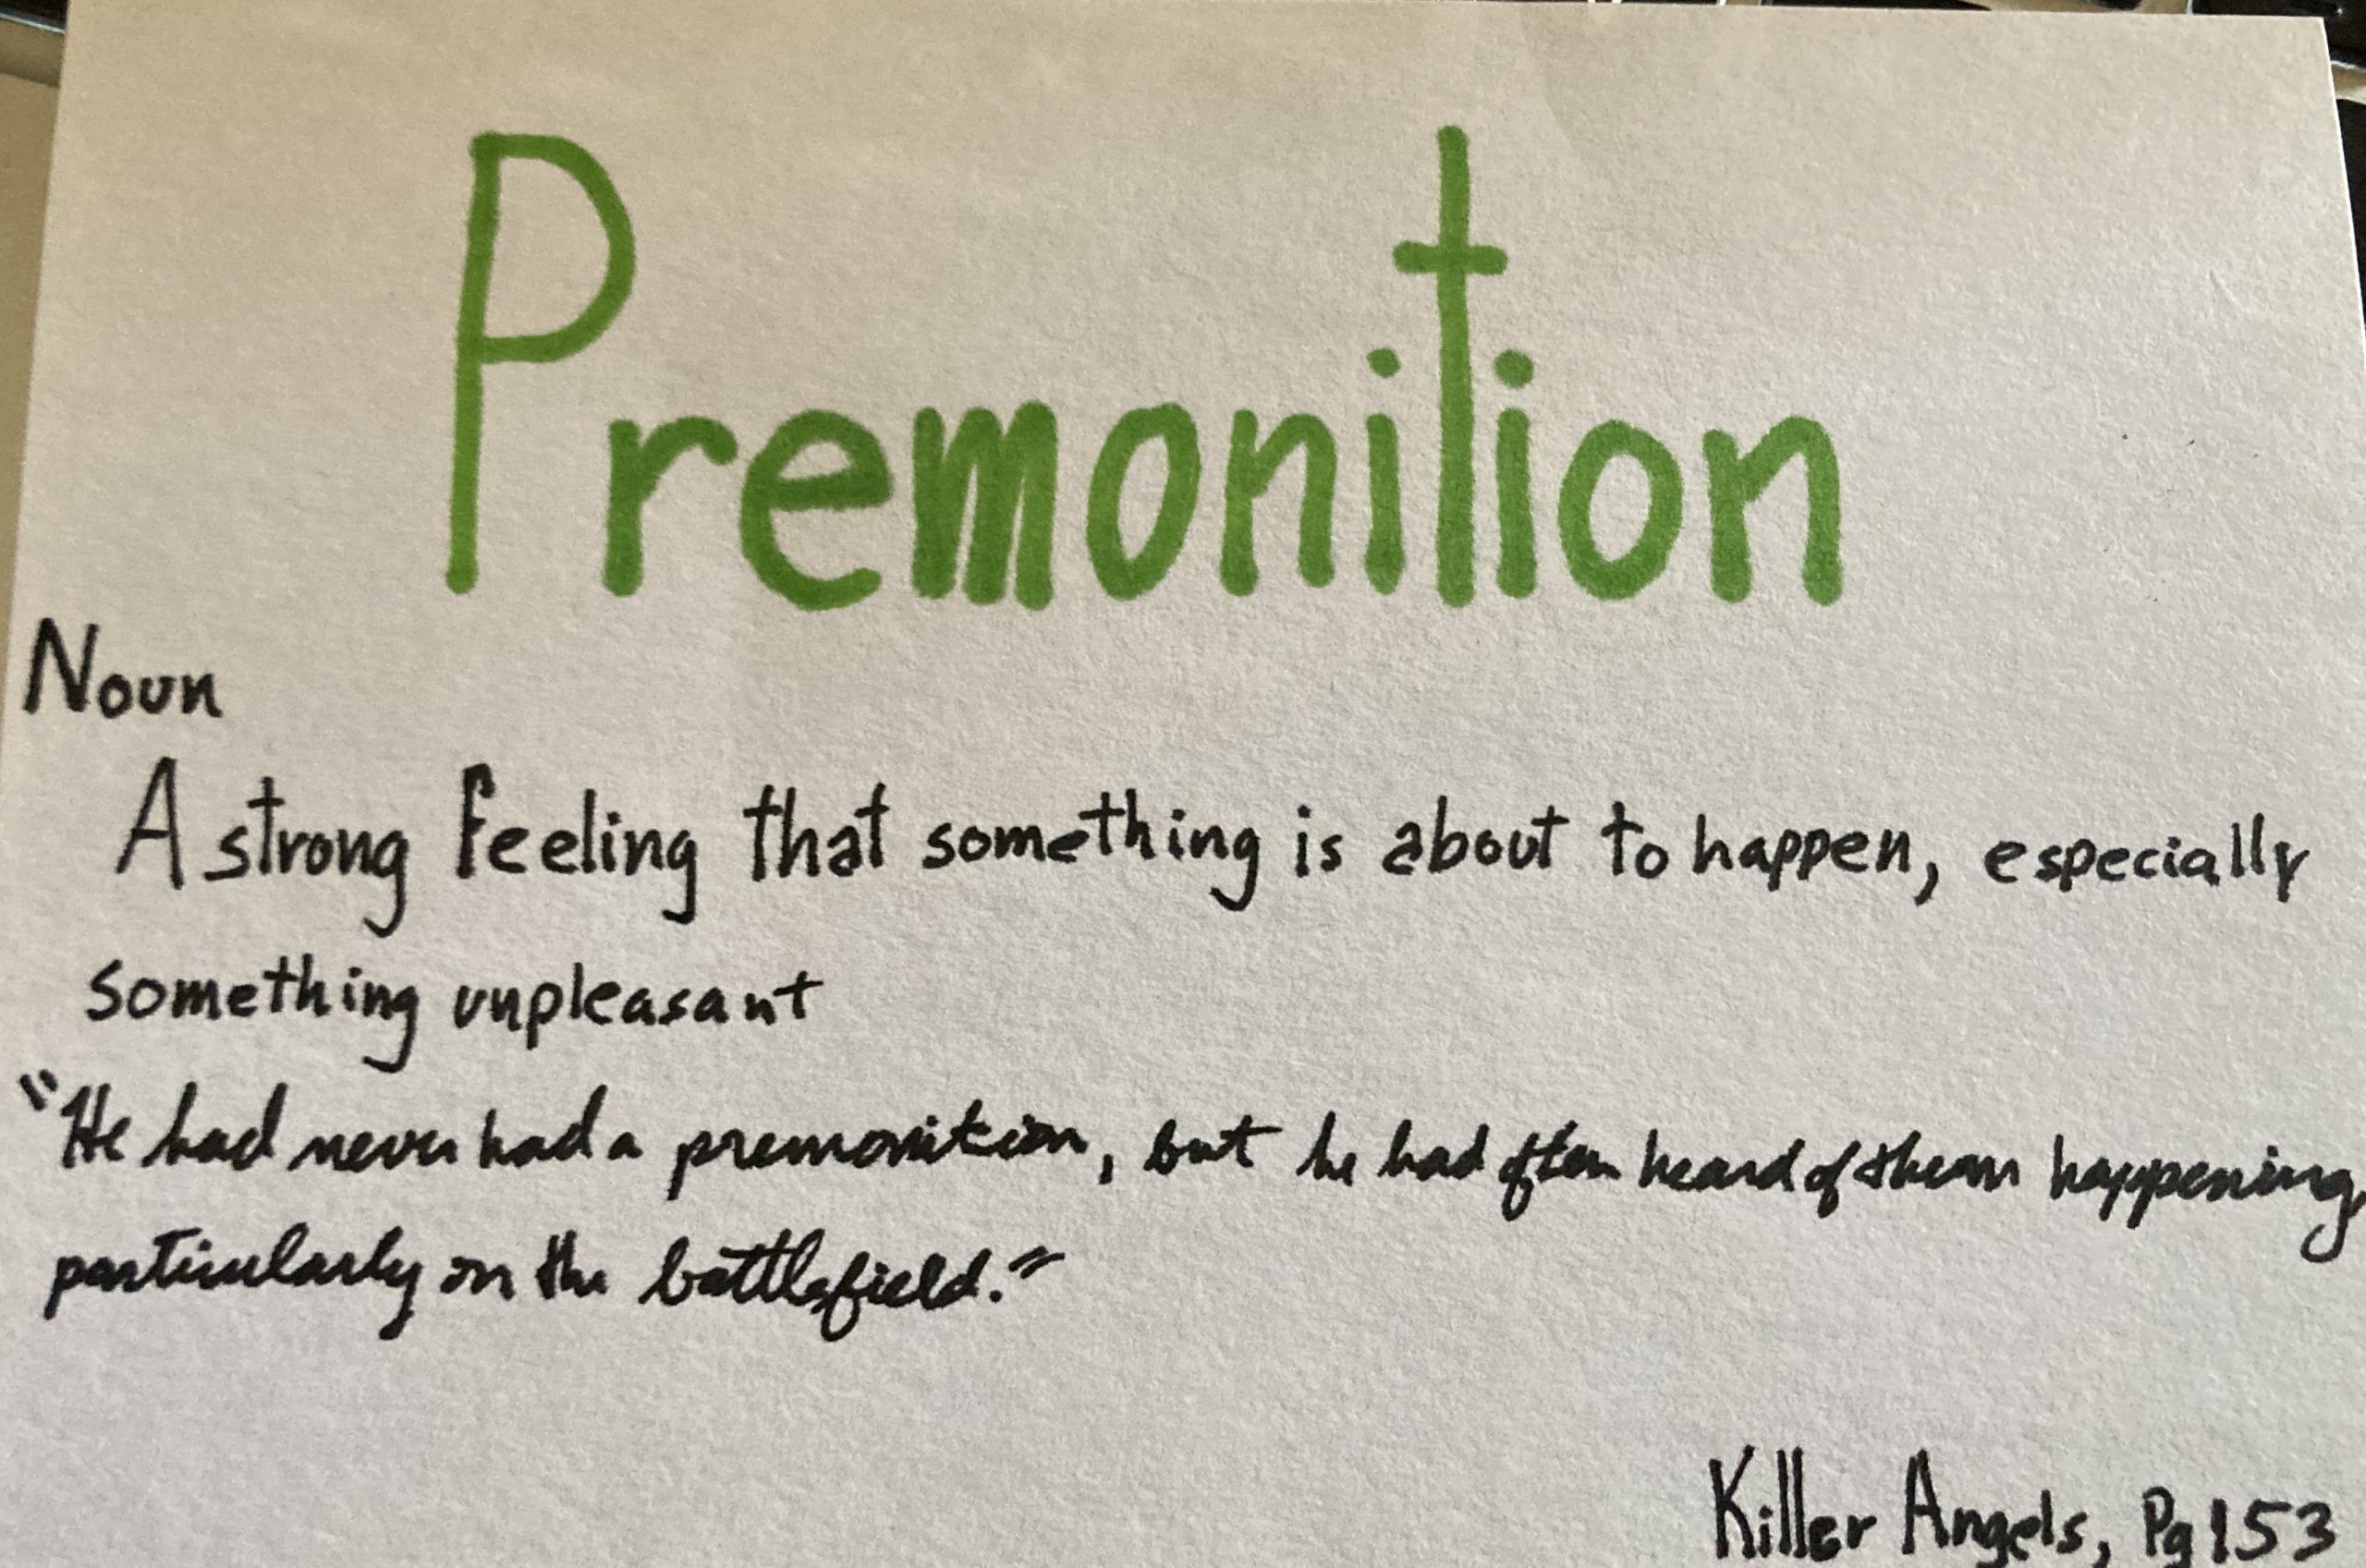 Premonition
Noun
A strong feeling that something is about to happen, especially
something unpleasant
"He had never had a premonition, but he had often heard of them happening,
particularly on the battlefield."
Killer Angels, Pg 153